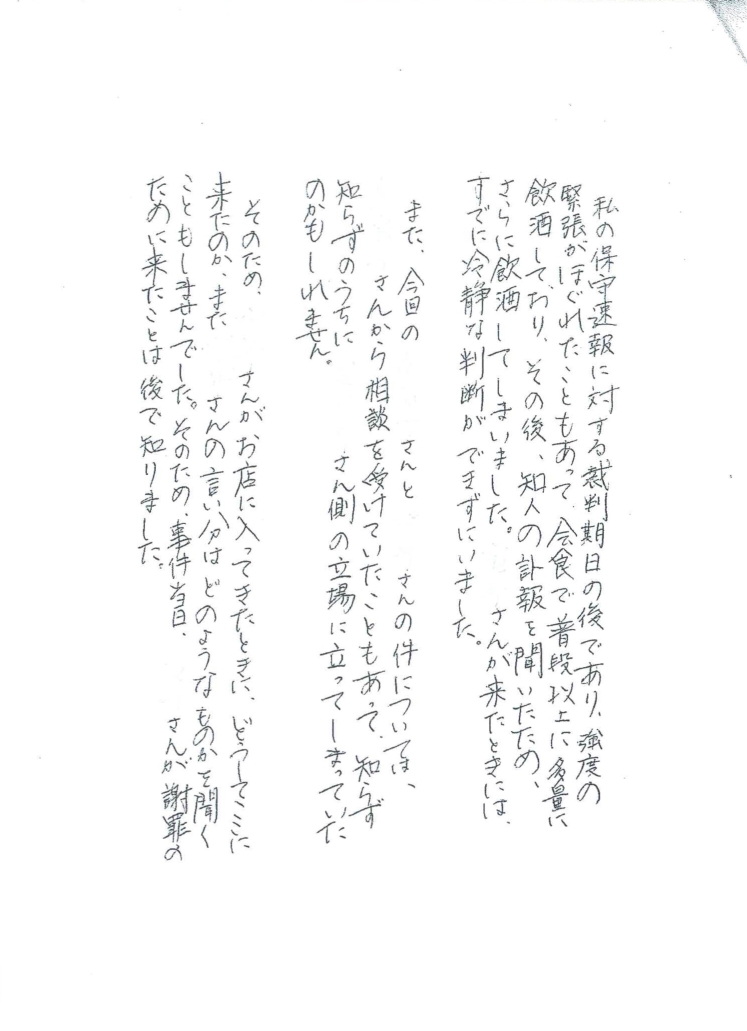 私の保守速報に対する裁判期日の後であり、強度の
緊張がほぐれたこともあって、会食で普段以上に多量に
飲酒しており、その後、知人の訃報を聞いたため、
さらに飲酒してしまいました。 さんが来たときには、
すでに冷静な判断ができずにいました。
また、今回の さんと さんの件については、
さんから相談を受けていたこともあって、知らず
知らずのうちに さん側の立場に立ってしまっていた
のかもしれません。
そのため、 さんがお店に入ってきたときに、どうしてここに
来たのか、また さんの言い分はどのようなものかを聞く
こともしませんでした。そのため、事件当日、 さんが謝罪の
ために来たことは後で知りました。